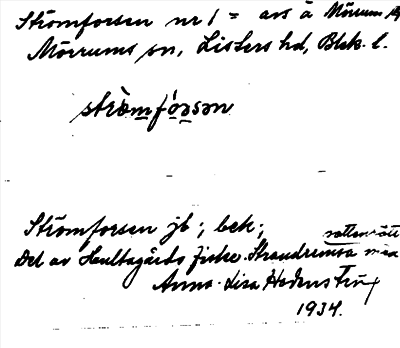 Strömforsen nr 1 = avs å Mörrum
Mörrums sn, Listers hd, Blek. l.
strömfórsən
Strömforsen jb; bek;
vattenrätt
Del av Hultagårds fiske. Strandremsa
Anna-Lisa Hedenström
1934.